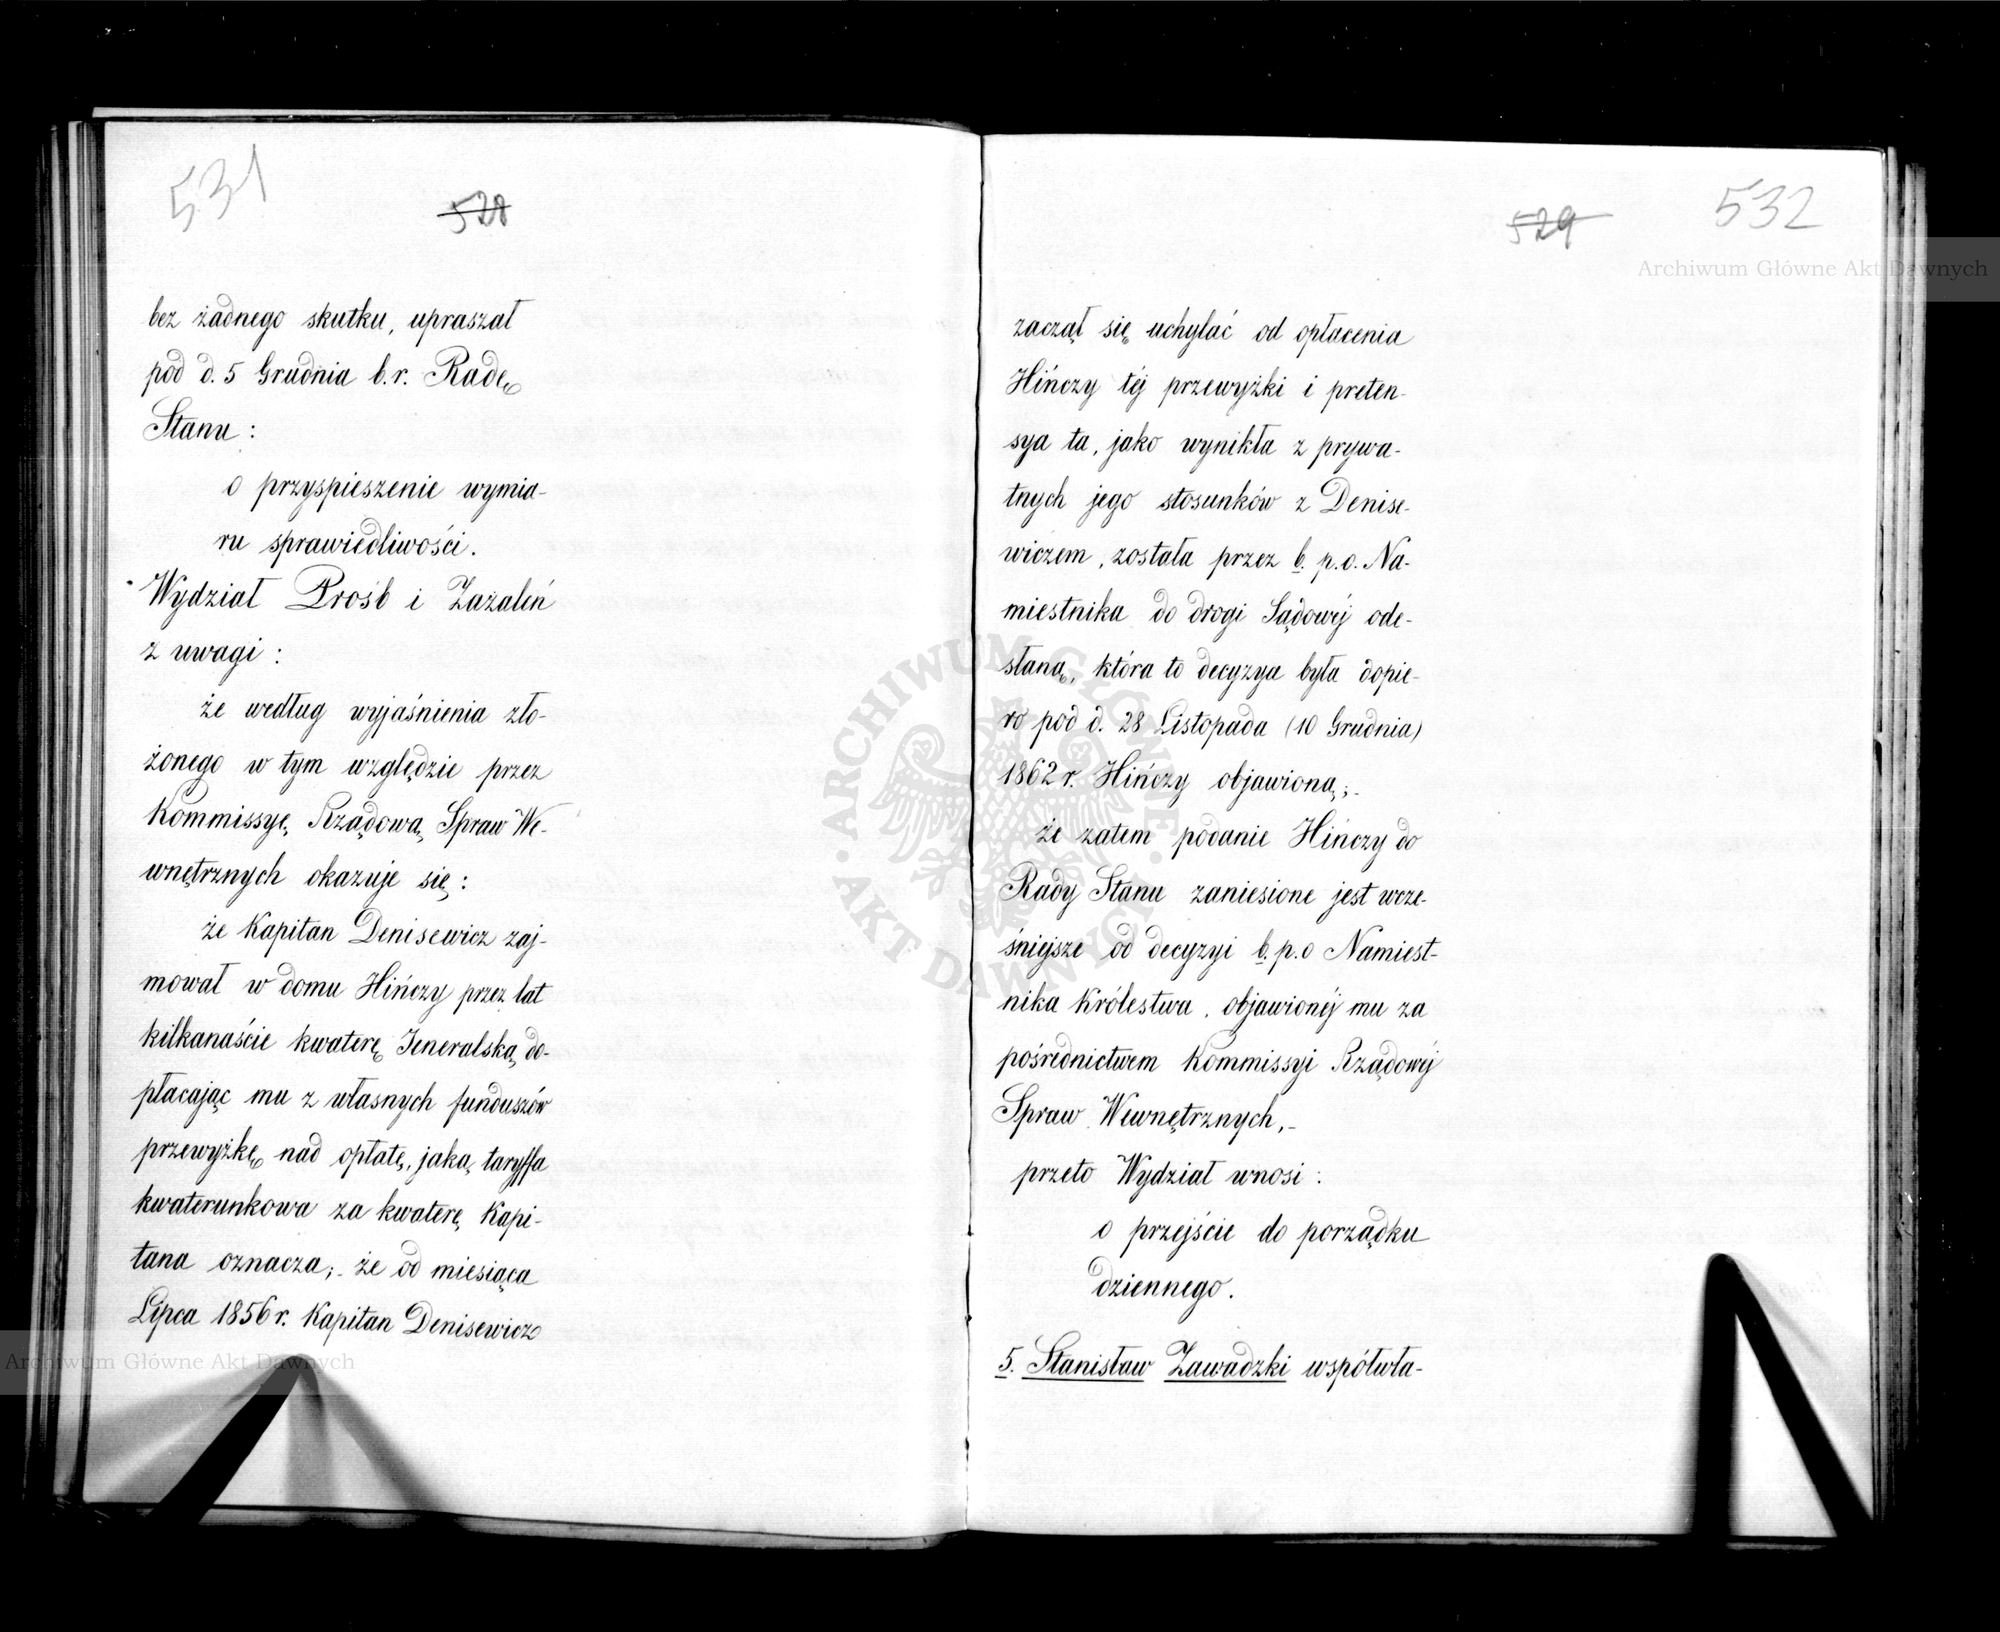 531
528
bez żadnego skutku, upraszał
pod d. 5 Grudnia b.r. Radę
Stanu:
o przyspieszenie wymia-
ru sprawiedliwości.
Wydział Prośb i Zażaleń
z uwagi:
że według wyjaśnienia zło-
żonego w tym względzie przez
Kommissyę Rządową Spraw We-
wnętrznych okazuje się:
że Kapitan Denisewicz zaj-
mował w domu Hińczy przez lat
kilkanaście kwaterę Jeneralską do-
płacając mu z własnych funduszów
przewyżkę nad opłatę, jaką taryffa
kwaterunkowa za kwaterę Kapi-
tana oznacza;- że od miesiąca
Lipca 1856 r. Kapitan Denisewicz
529
532
zaczął się uchylać od opłacenia
Hińczy téj przewyżki i preten-
sya ta, jako wynikła z prywa-
tnych jego stosunków z Denise-
wiczem, została przez b. p.o. Na-
miestnika do drogi Sądowéj ode-
słaną, która to decyzya była dopie-
ro pod d. 28 Listopada (10 Grudnia)
1862 r. Hińczy objawioną;-
że zatem podanie Hińczy do
Rady Stanu zaniesione jest wcze-
śniejsze od decyzyi b. p.o Namiest-
nika Królestwa, objawionéj mu za
pośrednictwem Kommissyi Rządowéj
Spraw Wewnętrznych,-
przeto Wydział wnosi:
o przejście do porządku
dziennego.
5. Stanisław Zawadzki współwła-
Archiwum Główne Akt Dawnych
Archiwum Główne Akt Dawnych
ARCHIWUM GŁÓWNE AKT DAWNYCH